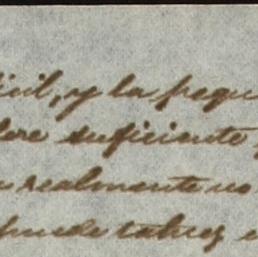 icil, y la pequ
lore suficiente
realmente no
puede talvez e